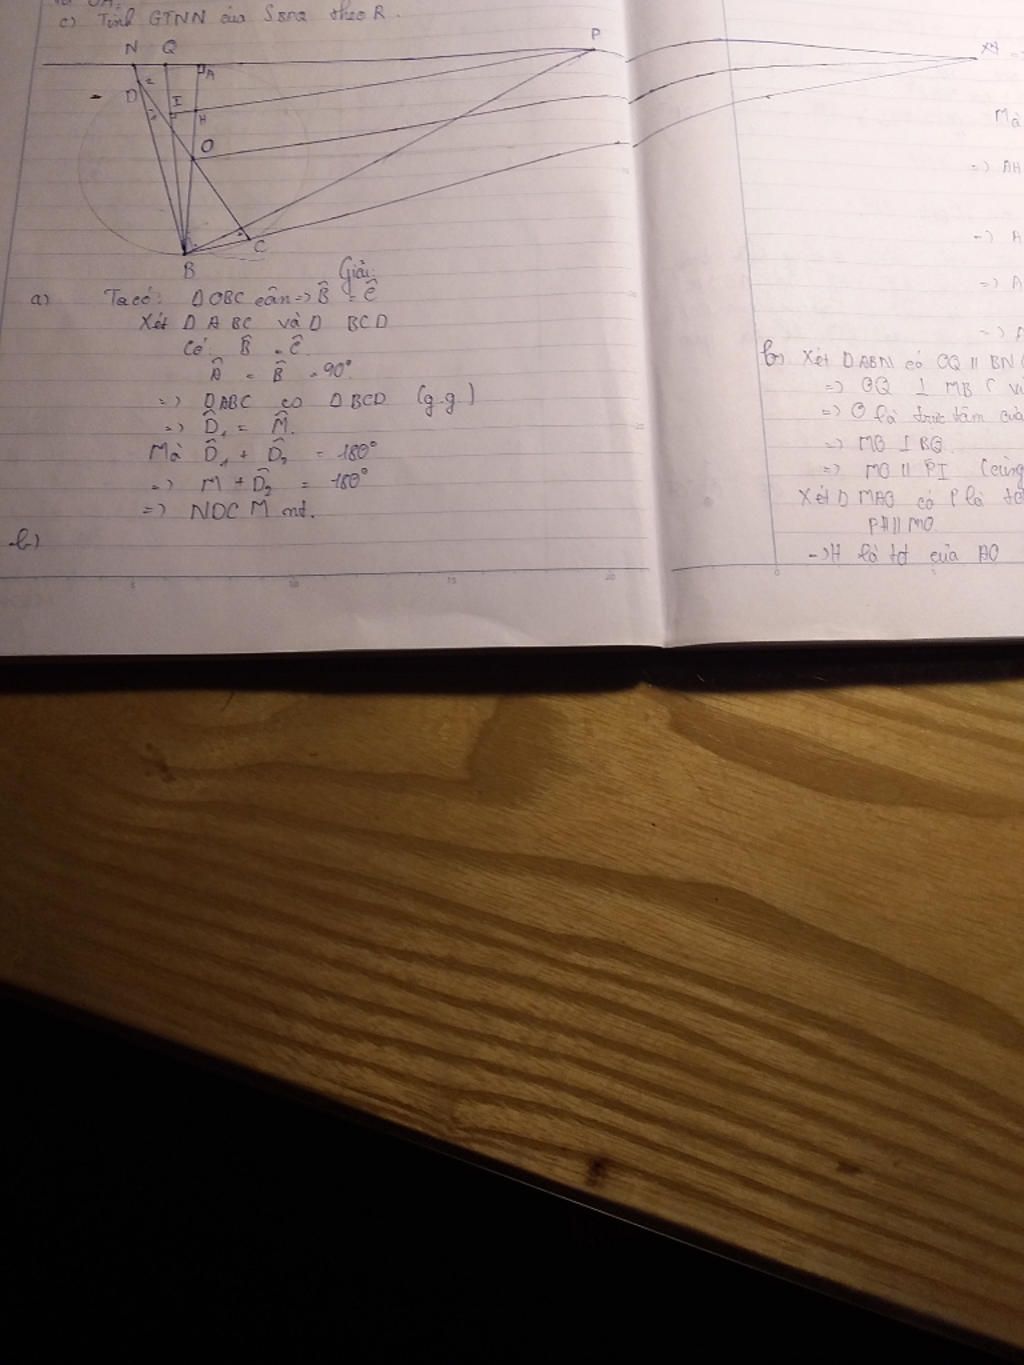 c) Tính GTNN của S BPQ theo R.
N Q A P
D I H
O
B C
Giải:
a) Ta có: ΔOBC cân => B̂ = Ĉ
Xét Δ ABC và Δ BCD
Có B̂ = Ĉ
Â = B̂ = 90°
=> ΔABC ∽ ΔBCD (g.g)
=> D̂₁ = M̂.
Mà D̂₁ + D̂₂ = 180°
=> M + D̂₂ = 180°
=> NDCM nt.
b)
Mà
=> AH
=> A
=> A
b) Xét ΔABN có OQ // BN
=> OQ ⊥ MB
=> O là trực tâm của
=> MO ⊥ BQ
=> MO // PI (cùng
Xét Δ MAO có P là
PH // MO
=> H là tđ của AO